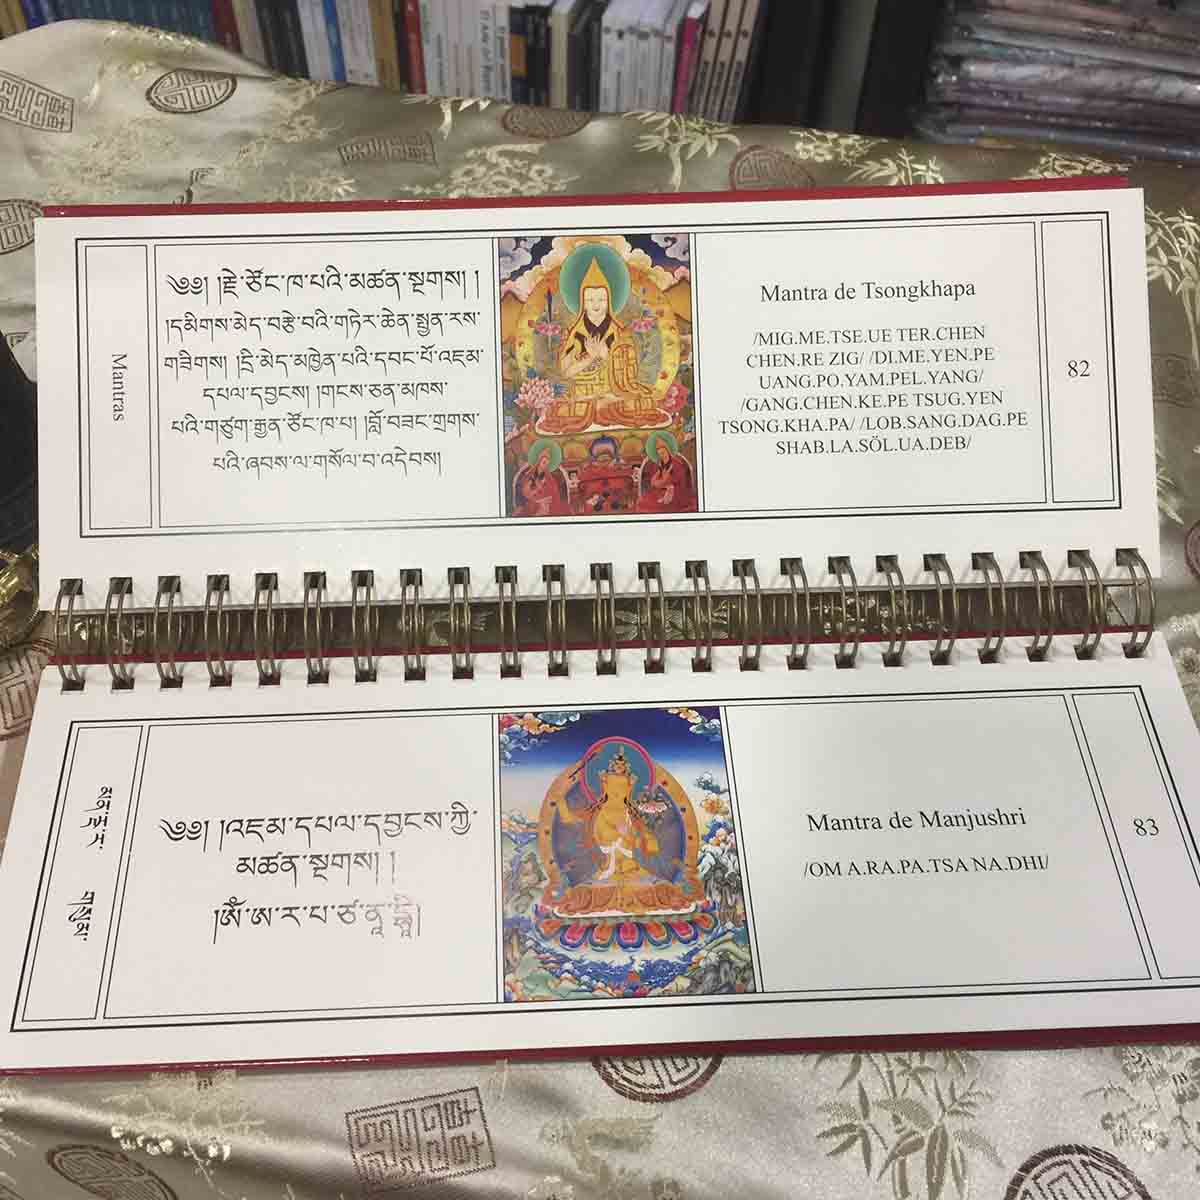 Mantras
༄༅། །རྗེ་ཙོང་ཁ་པའི་མཚན་སྔགས། །
།དམིགས་མེད་བརྩེ་བའི་གཏེར་ཆེན་སྤྱན་རས་
གཟིགས། །དྲི་མེད་མཁྱེན་པའི་དབང་པོ་འཇམ་
དཔལ་དབྱངས། །གངས་ཅན་མཁས་
པའི་གཙུག་རྒྱན་ཙོང་ཁ་པ། །བློ་བཟང་གྲགས་
པའི་ཞབས་ལ་གསོལ་བ་འདེབས།
Mantra de Tsongkhapa
/MIG.ME.TSE.UE TER.CHEN
CHEN.RE ZIG/ /DI.ME.YEN.PE
UANG.PO.YAM.PEL.YANG/
/GANG.CHEN.KE.PE TSUG.YEN
TSONG.KHA.PA/ /LOB.SANG.DAG.PE
SHAB.LA.SÖL.UA.DEB/
82
༄༅། །འཇམ་དཔལ་དབྱངས་ཀྱི་
མཚན་སྔགས། །
།ཨོཾ་ཨ་ར་པ་ཙ་ན་
Mantra de Manjushri
/OM A.RA.PA.TSA NA.DHI/
83